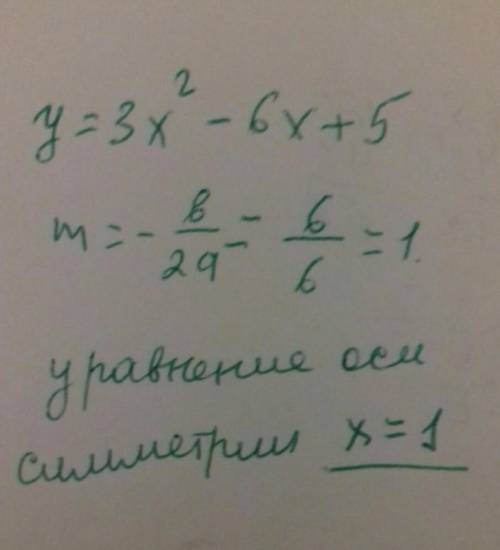 y = 3x² - 6x + 5
m = - в/2a = 6/6 = 1.
уравнение оси
симметрии x = 1